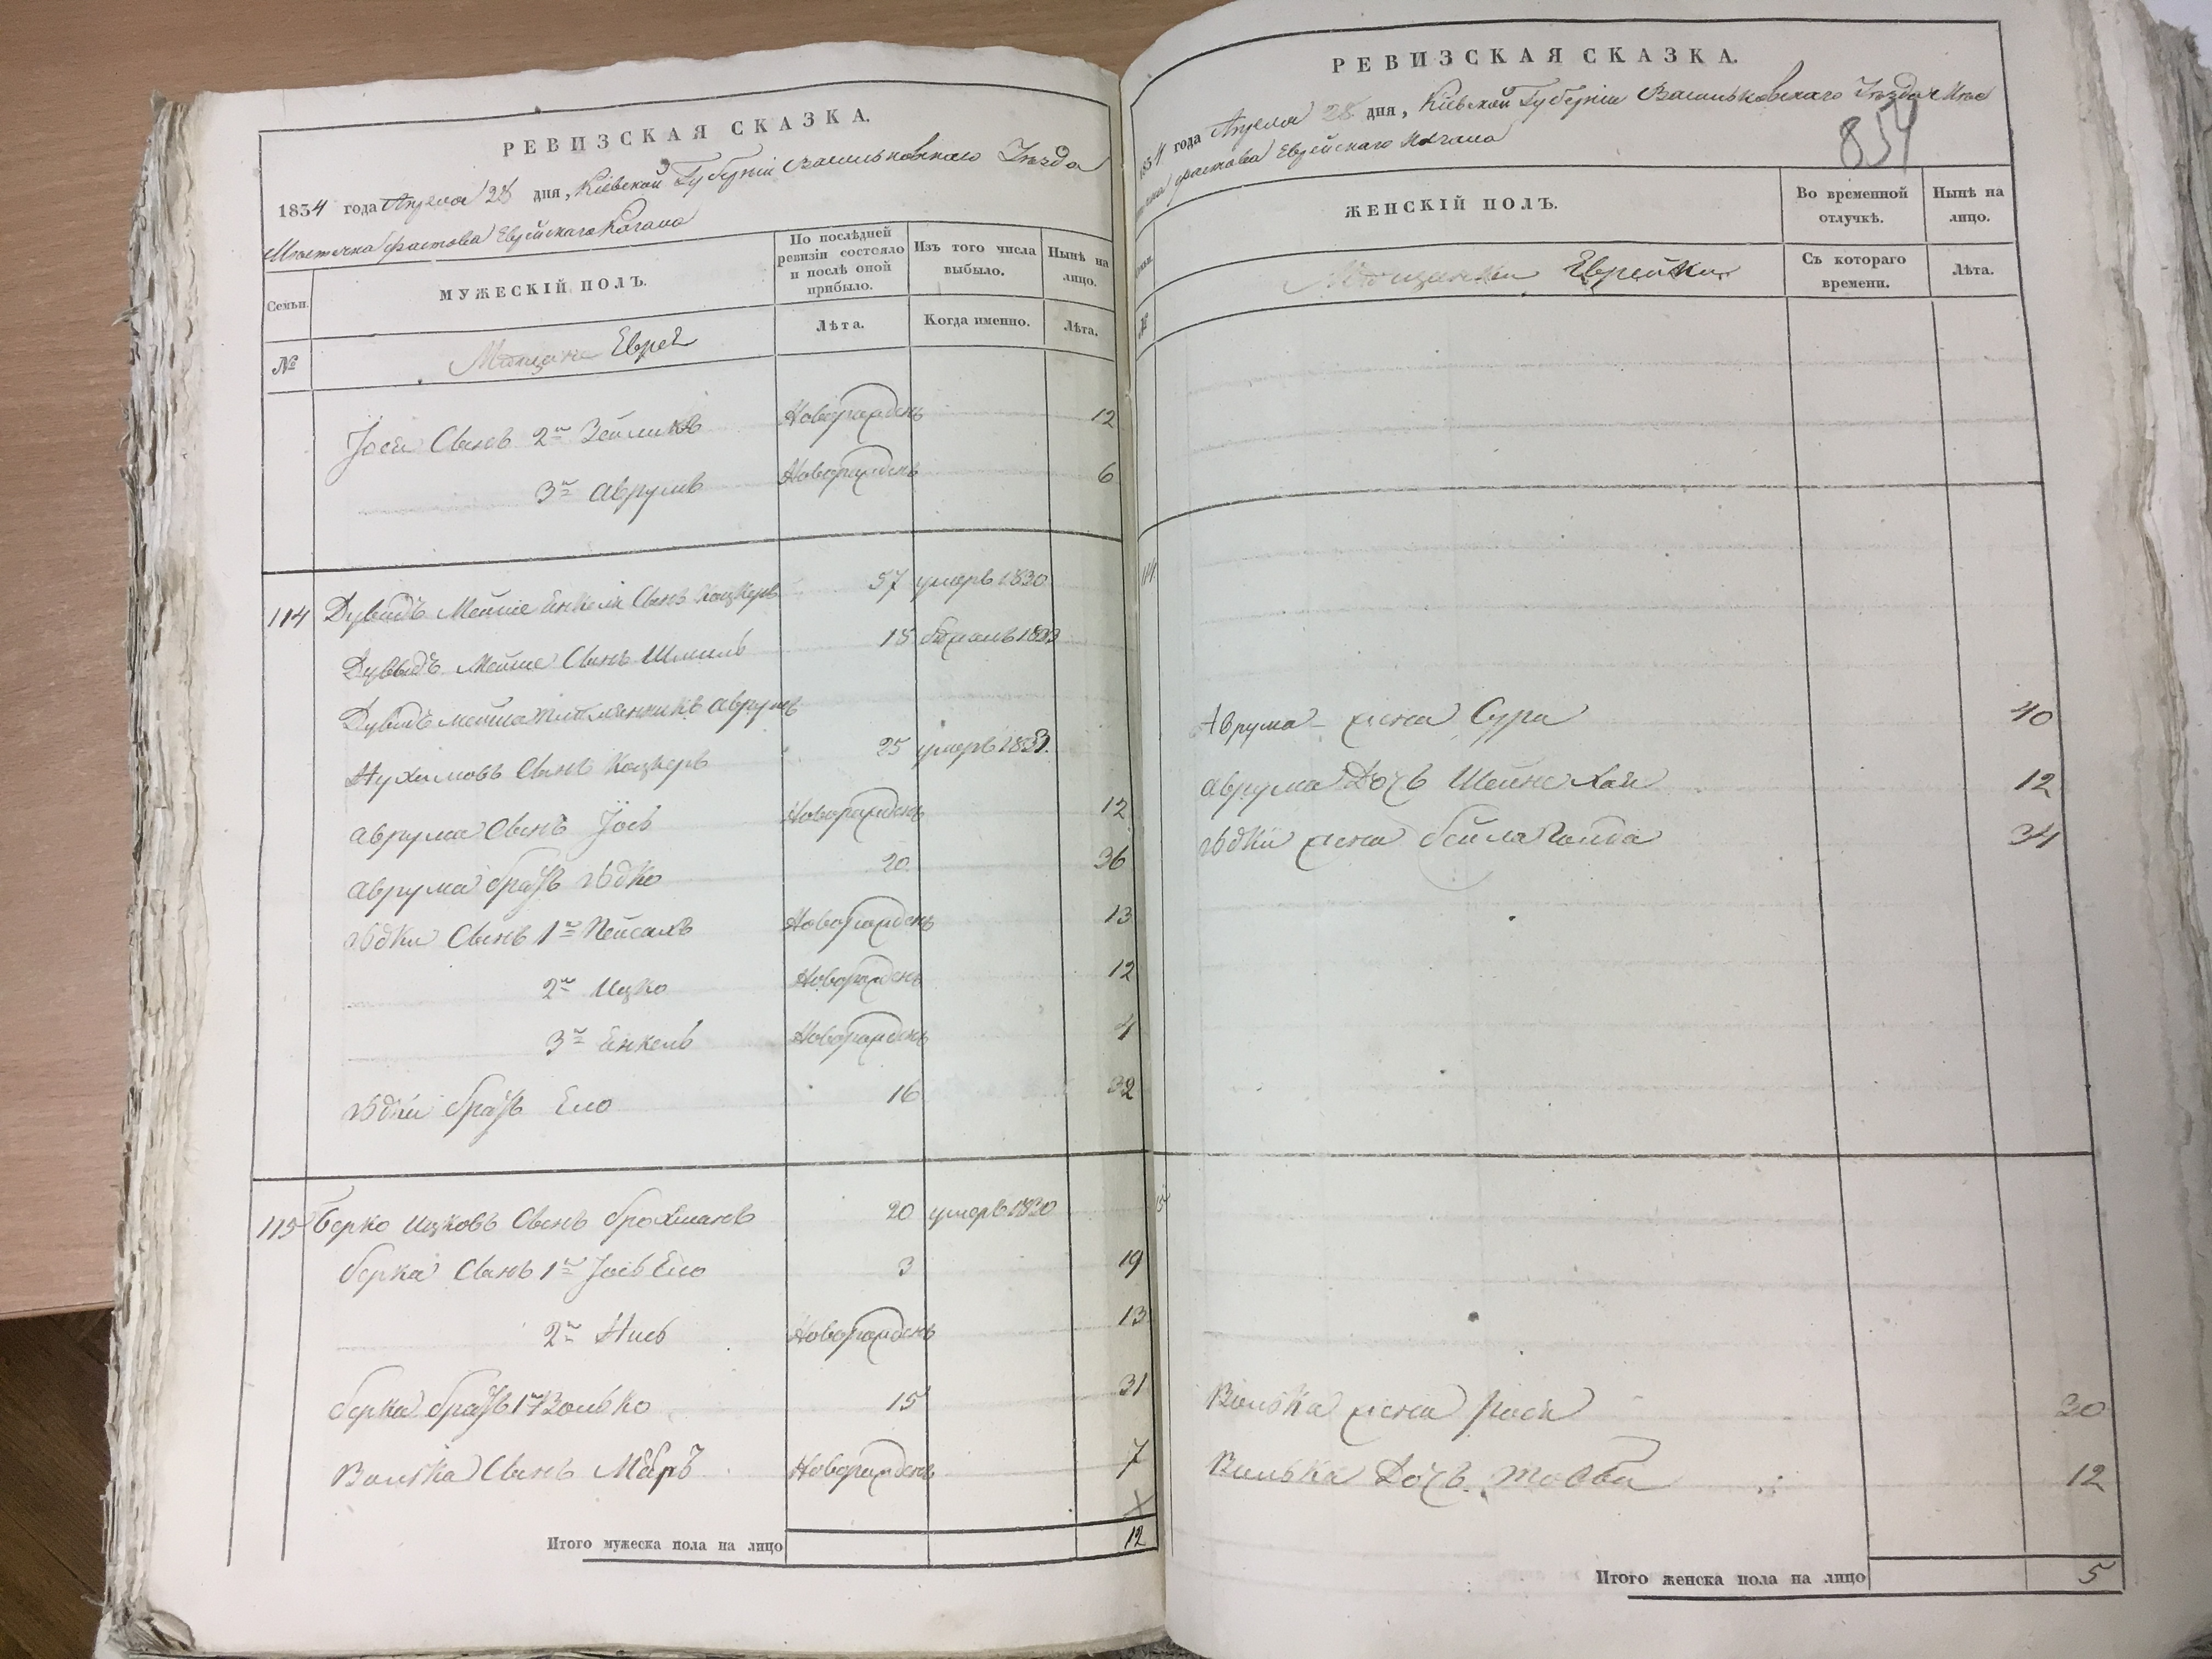 РЕВИЗСКАЯ СКАЗКА.
1834 года Апреля 28 дня, Кіевской Губерніи Васильковскаго Уезда
Местечка Фастова Еврейскаго Кагала
Семьи.
МУЖЕСКІЙ ПОЛЪ.
По послѣдней ревизіи состояло и послѣ оной прибыло.
Изъ того числа выбыло.
Нынѣ на лицо.
Лѣта.
Когда именно.
Лѣта.
№
Мещане Евреи
Іося Сынъ 2й Зейликъ Новорожденъ 12
3й Аврумъ Новорожденъ 6
114 Дувидъ Мойше Енкеля Сынъ Коцкеръ 57 умеръ 1830
Дувидъ Мойше Сынъ Шмиль 15
Дувидъ мойша племянникъ аврумъ
Нухимовъ Сынъ Коцкеръ 25 умеръ
аврума Сынъ Іось Новорожденъ 12
аврума братъ 20 36
Сынъ 1й Пейсахъ Новорожденъ 13
2й Ицко Новорожденъ 12
3й Енкель Новорожденъ 4
братъ Ело 16 32
115 Берко Ицковъ Сынъ 20 умеръ 1830
берка Сынъ 1й Іось Ело 3 19
2й Новорожденъ 13
берка братъ 1й Волько 15 31
Волька Сынъ Мееръ Новорожденъ 7
Итого мужеска пола на лицо 12
РЕВИЗСКАЯ СКАЗКА.
1834 года Апреля 28 дня, Кіевской Губерніи Васильковскаго Уезда Мес
течка Фастова Еврейскаго Кагала
854
ЖЕНСКІЙ ПОЛЪ.
Во временной отлучкѣ.
Нынѣ на лицо.
Съ котораго времени.
Лѣта.
№
Мещанки Еврейки
114
Аврума жена Сура 40
аврума Дочь Шейне Хая 12
жена бейла 34
Волька жена 30
Волька Дочь 12
Итого женска пола на лицо 5